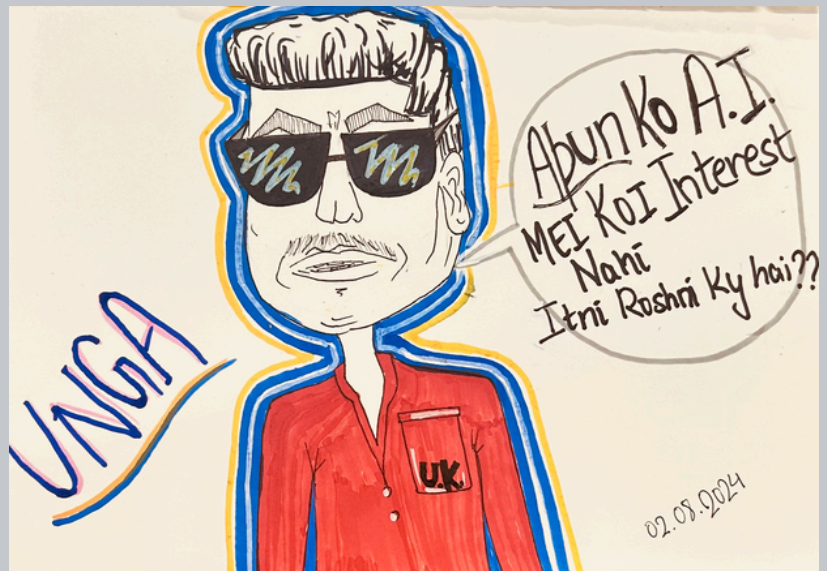 Apun Ko A.I.
MEI KOI Interest
Nahi
Itni Roshni Ky hai??
UNGA
U.K.
02.08.2024